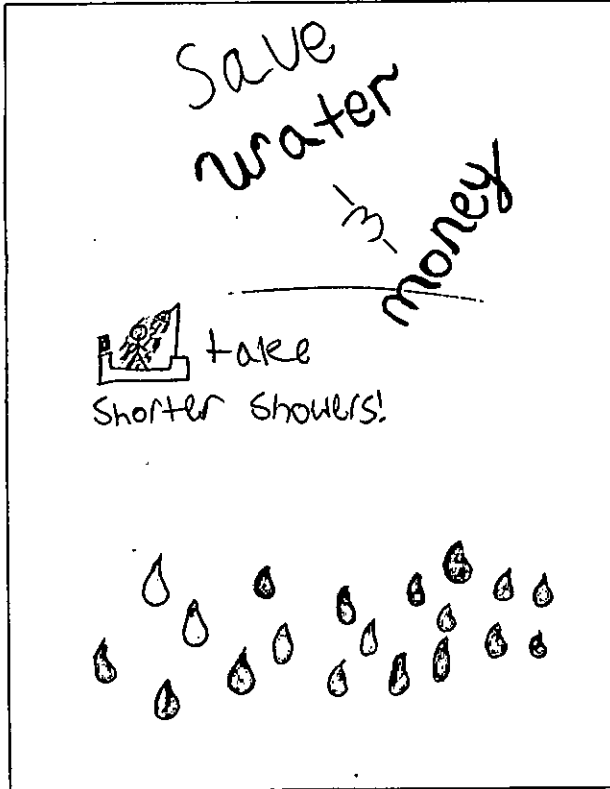 Save
water
&
money
take
shorter showers!